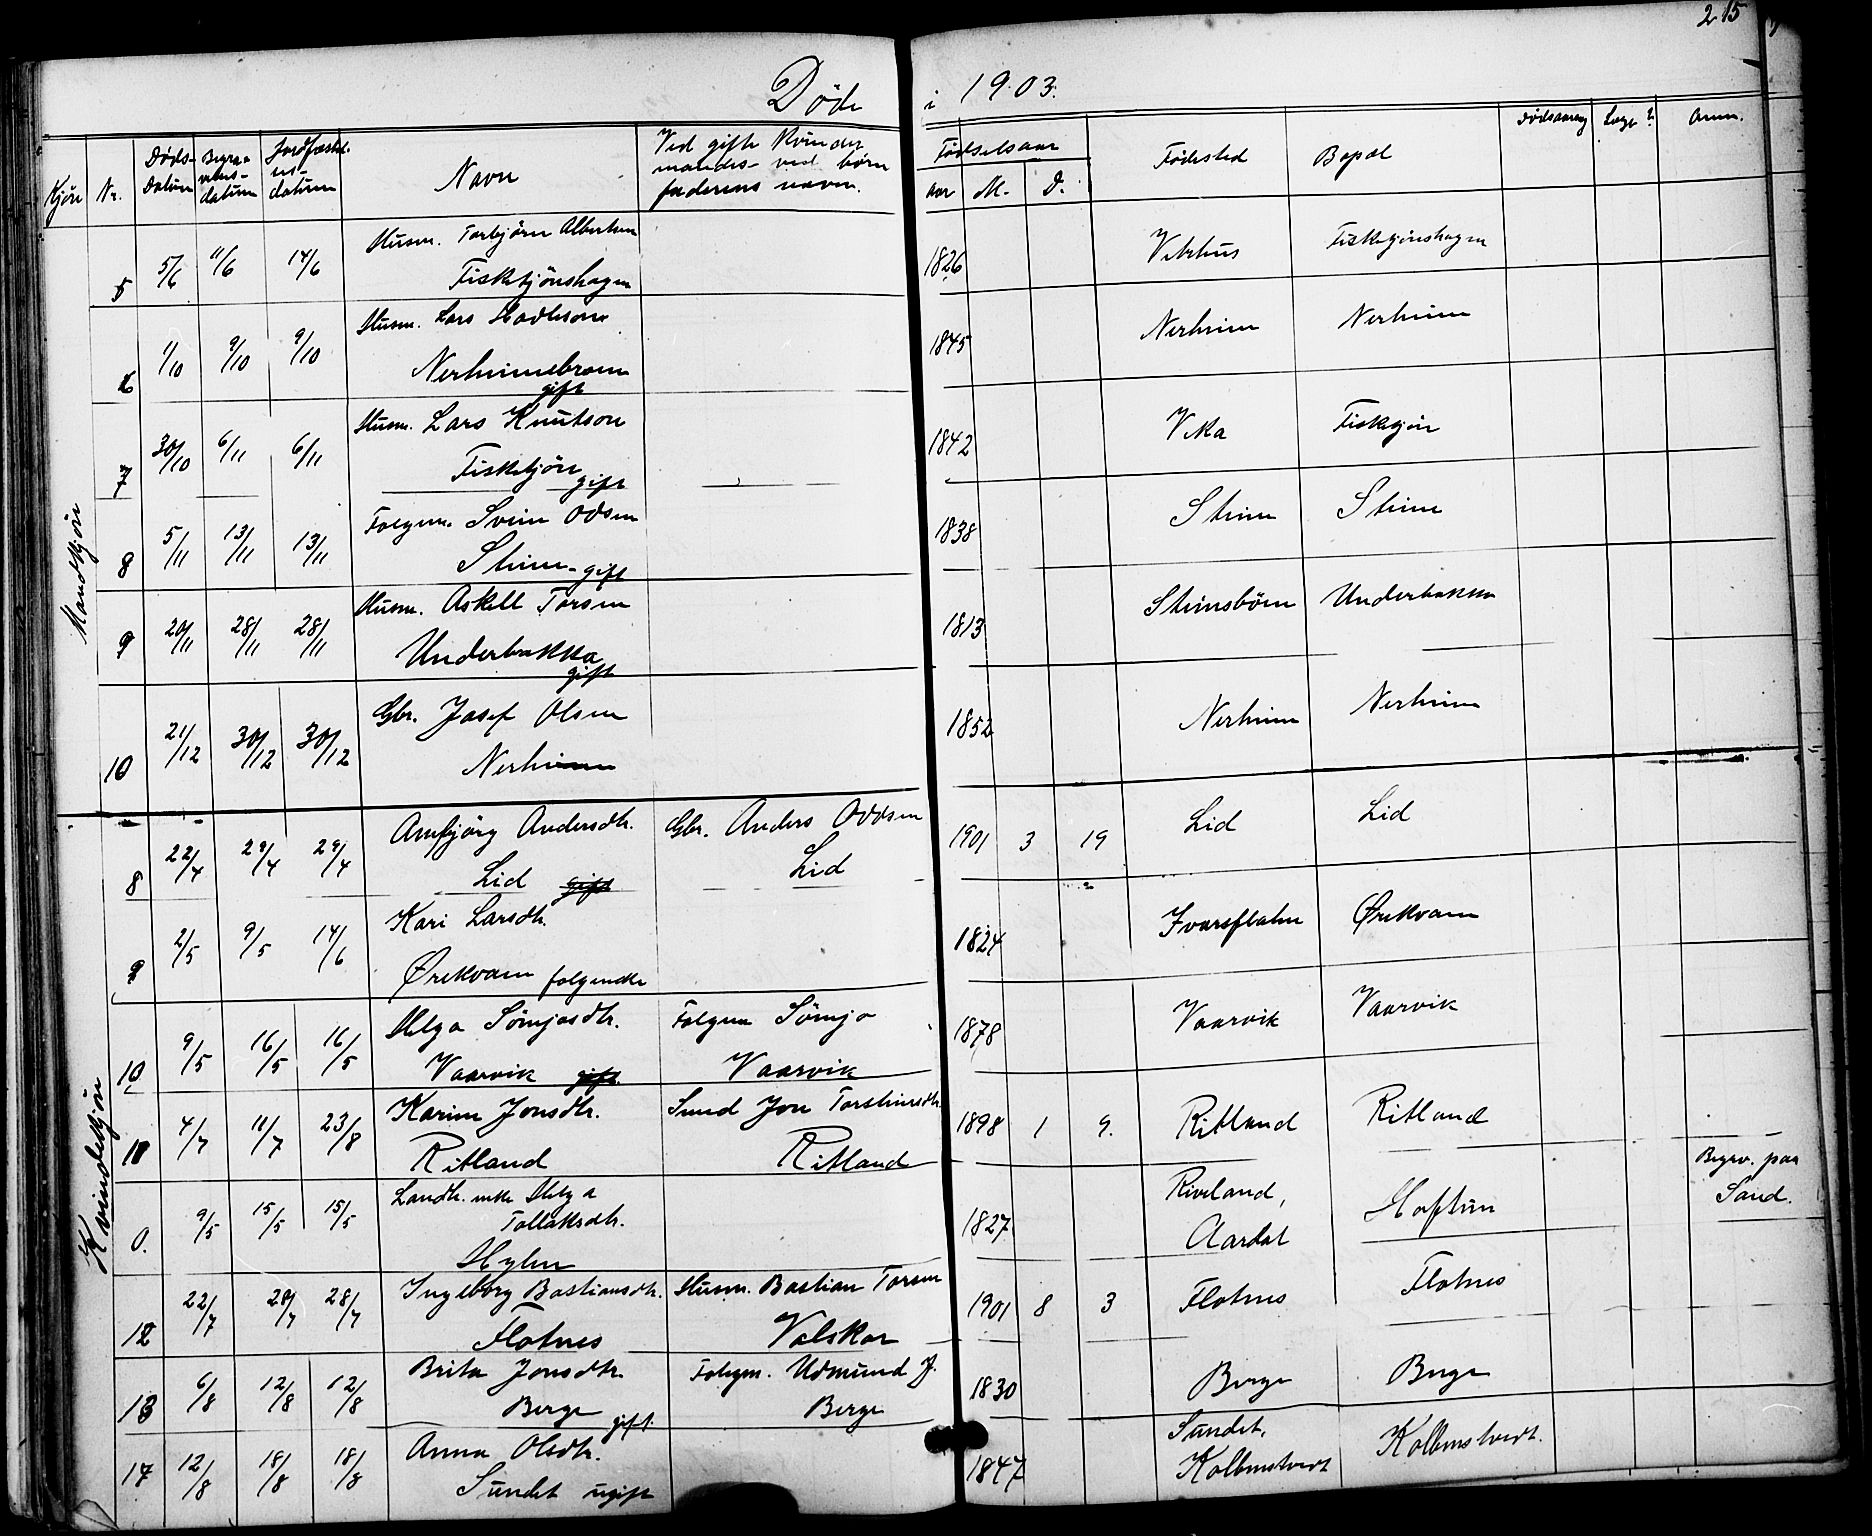 215
Døde i 1903.
Kjøn Nr. Døds-Datum Begravelses-datum Jordfæstelses-datum Navn Ved gifte Kvinder mandes- ved børn faderens navn. Fødselsaar Fødested Bopæl Dødsaarsag Læge? Anm.
aar M. D.
Mandkjøn
5 5/6 11/6 14/6 Husm. Torbjörn Albertsen 1826 Vetrhus Fisketjönshagen
Fisketjönshagen
6 1/10 9/10 9/10 Husm. Lars Hadleson 1845 Nerheim Nerheim
Nerheimsbraem gift
7 30/10 6/11 6/11 Husm. Lars Knutson 1842 Vika Fisketjön
Fisketjön gift
8 5/11 13/11 13/11 Folgem. Svein Odsen 1838 Steine Steine
Steine - gift
9 20/11 28/11 28/11 Husm. Askell Torsen 1813 Steinsböen Underbakka
Underbakka gift
10 21/12 30/12 30/12 Gbr. Josef Olsen 1852 Nerheim Nerheim
Nerheim
Kvindekjön
8 22/4 29/4 29/4 Annbjörg Andersdtr. Gbr. Anders Oddsen 1901 3 19 Lid Lid
Lid gift Lid
9 2/5 9/5 14/6 Kari Larsdtr. 1824 Ivarsflaten Örekvam
Örekvam folgeenke
10 9/5 16/5 16/5 Helga Sömjasdtr. Folgem Sömja 1878 Vaarvik Vaarvik
Vaarvik gift Vaarvik
11 4/7 11/7 23/8 Karine Jonsdtr. Smed Jon Torsteinsdtr. 1898 1 9. Ritland Ritland
Ritland Ritland
0. 9/5 15/5 15/5 Landh. enke Helga 1827 Riveland, Hoftun Begrav. paa
Tollaksdtr. Aardal Sand.
Hylen
12 22/7 28/7 28/7 Ingeborg Bastiansdtr. Husm. Bastian Torsen 1901 8 3 Flotnes Flotnes
Flotnes Valskar
13 6/8 12/8 12/8 Brita Jonsdtr. Folgem. Udmund J. 1830 Berge Berge
Berge gift. Berge
14 12/8 18/8 18/8 Anna Olsdtr. 1847 Sundet, Kolbenstvedt.
Sundet ugift Kolbenstvedt